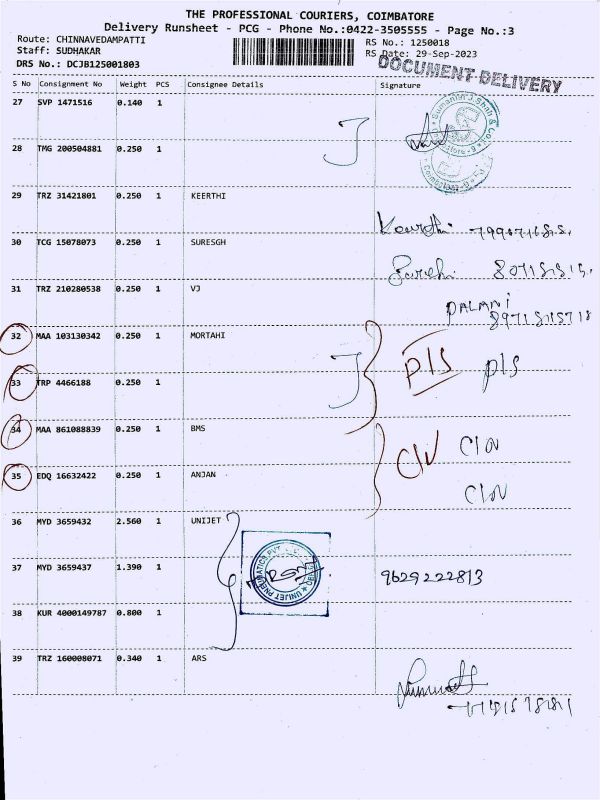 THE PROFESSIONAL COURIERS, COIMBATORE
Delivery Runsheet - PCG - Phone No.:0422-3505555 - Page No.:3
Route: CHINNAVEDAMPATTI
RS No.: 1250018
Staff: SUDHAKAR
RS Date: 29-Sep-2023
DRS No.: DCJB125001803
DOCUMENT DELIVERY
S No Consignment No Weight PCS Consignee Details Signature
27 SVP 1471516 0.140 1
28 TMG 200504881 0.250 1
29 TRZ 31421801 0.250 1 KEERTHI
Keerthi
30 TCG 15078073 0.250 1 SURESGH
31 TRZ 210280538 0.250 1 VJ
PALANI
32 MAA 103130342 0.250 1 MORTAHI
P/S P/S
33 TRP 4466188 0.250 1
34 MAA 861088839 0.250 1 BMS
35 EDQ 16632422 0.250 1 ANJAN
36 MYD 3659432 2.560 1 UNIJET
37 MYD 3659437 1.390 1
9629222813
38 KUR 4000149787 0.800 1
39 TRZ 160008071 0.340 1 ARS